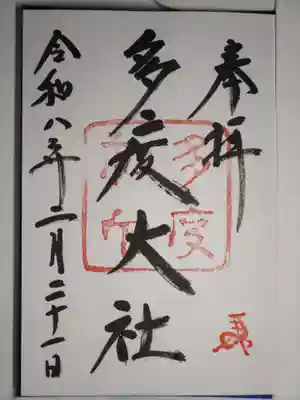 奉拝
多度大社
令和八年二月二十一日
多度